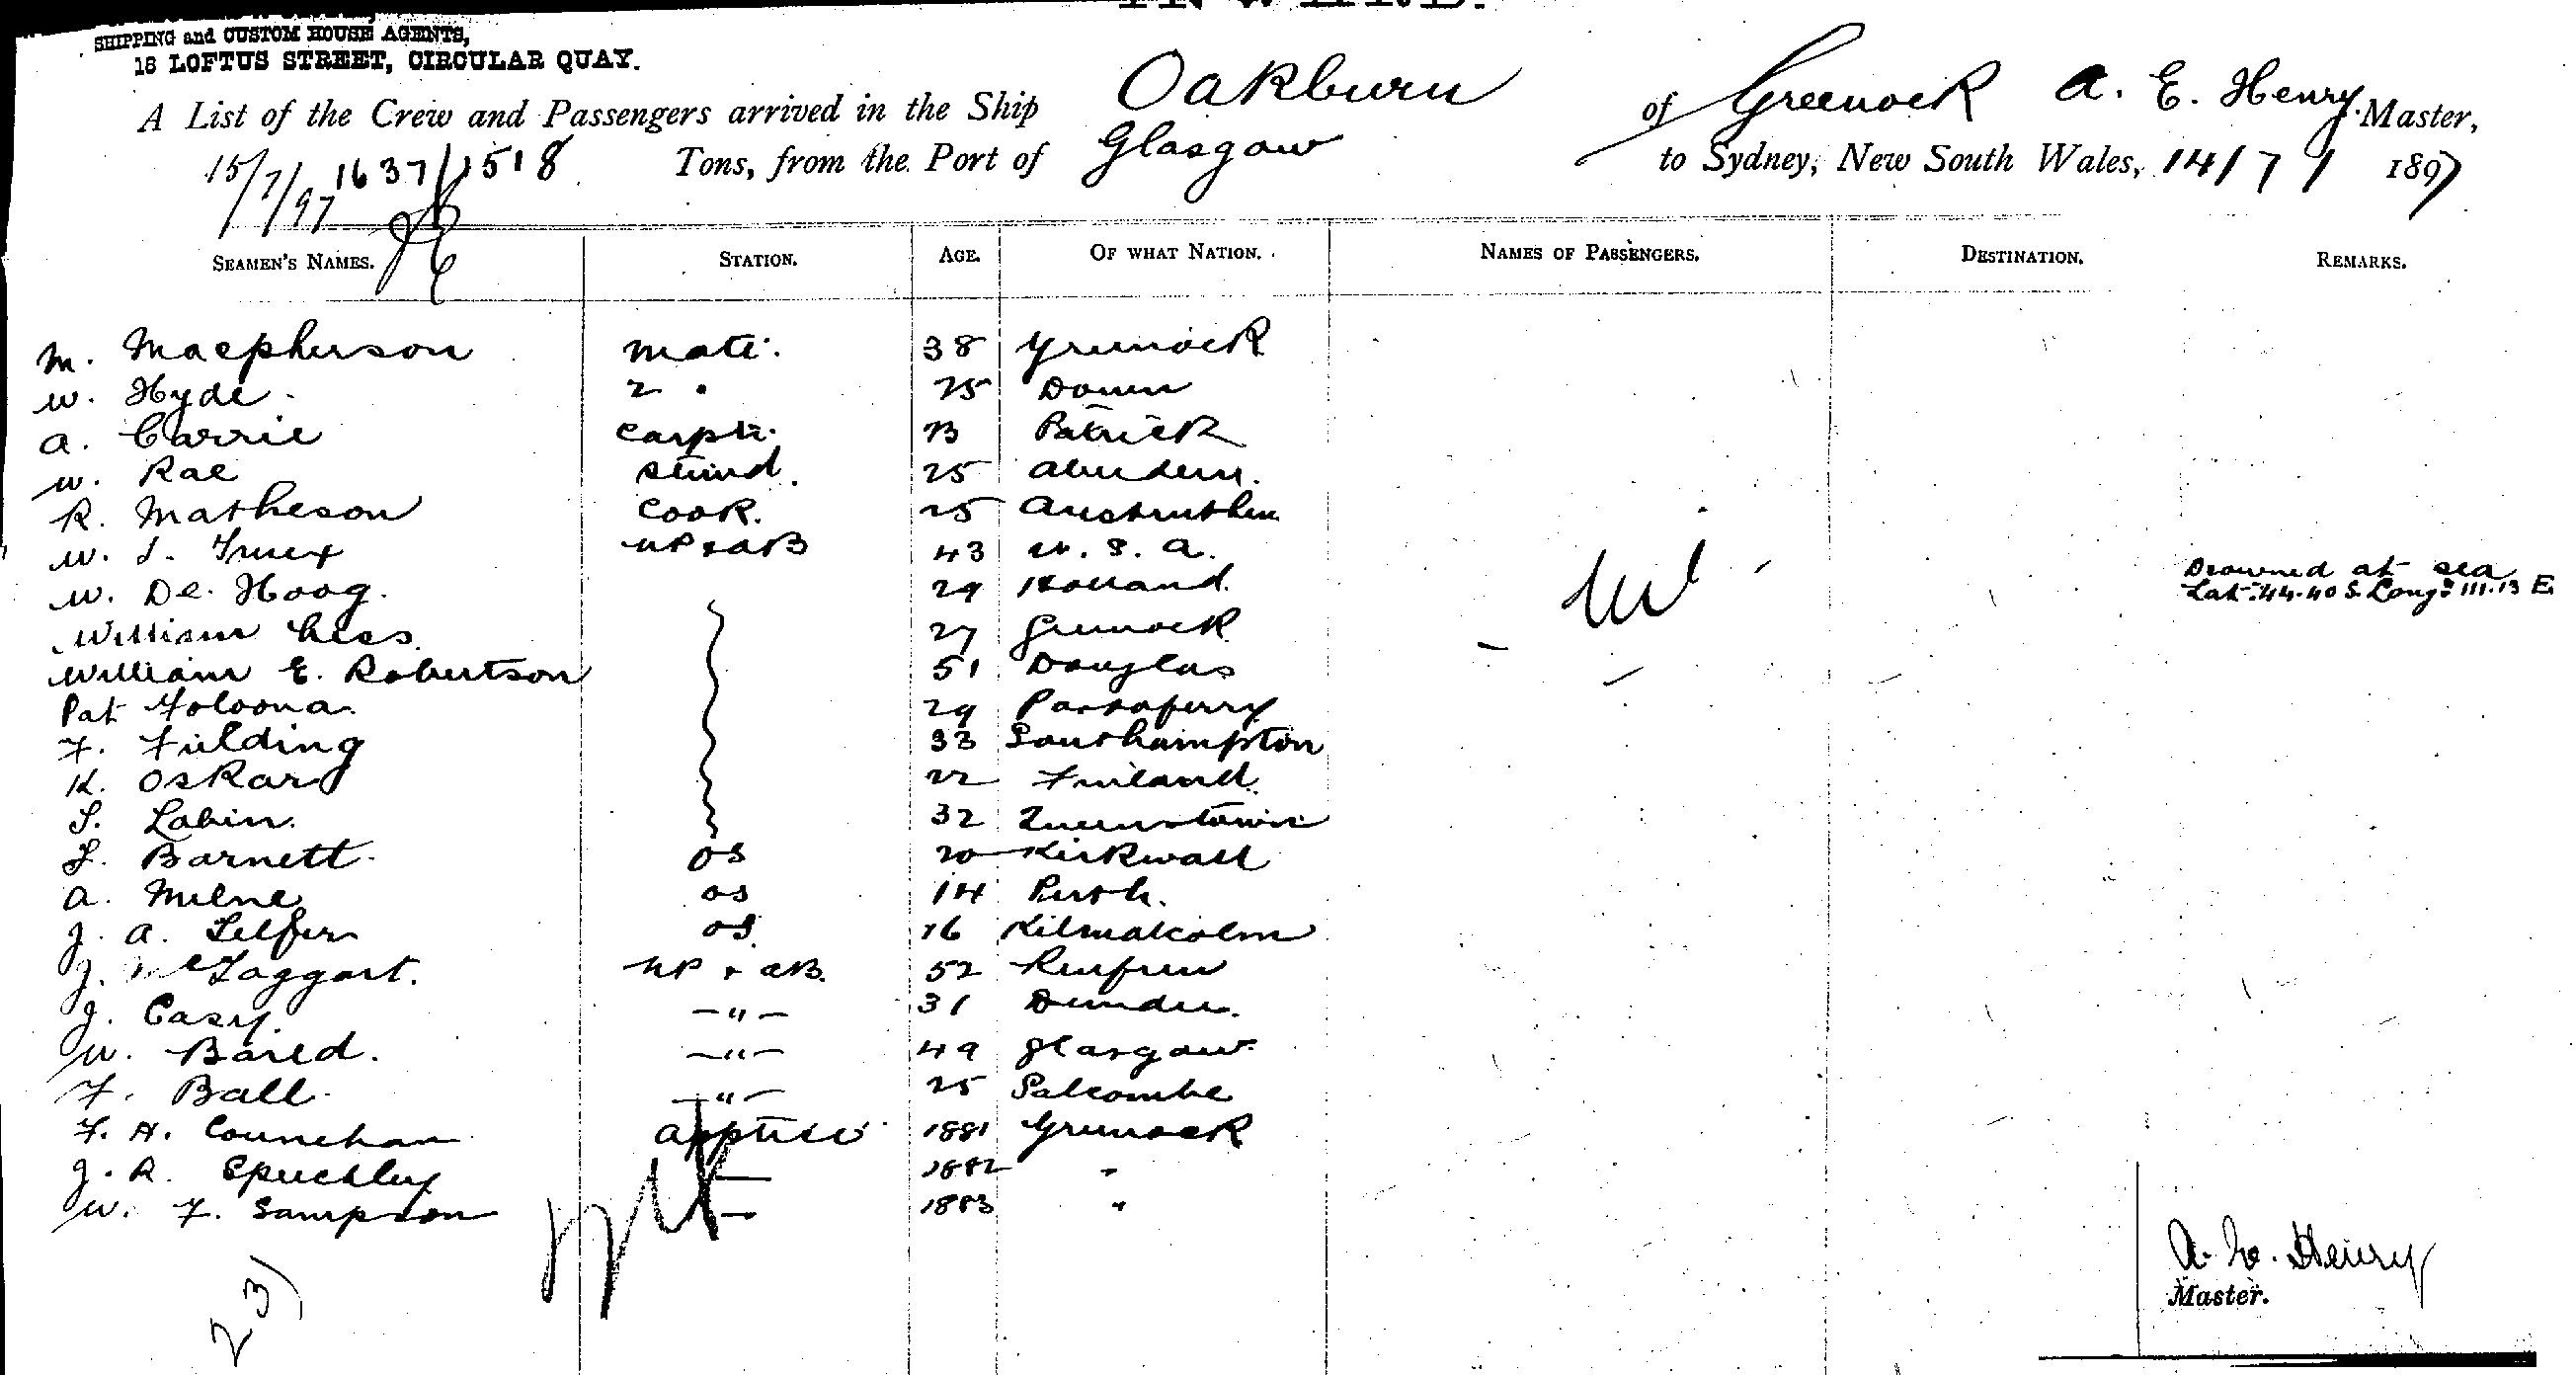 SHIPPING and CUSTOM HOUSE AGENTS,
18 LOFTUS STREET, CIRCULAR QUAY.
A List of the Crew and Passengers arrived in the Ship Oakburn of Greenock A. E. Henry Master,
15/7/97 1637/1518 Tons, from the Port of Glasgow to Sydney, New South Wales, 14/7/ 1897
SEAMEN'S NAMES. STATION. AGE. OF WHAT NATION. NAMES OF PASSENGERS. DESTINATION. REMARKS.
M. Macpherson Mate. 38 Greenock
W. Hyde. 2 " 25 Down
A. Carrie Carptr. 23 Patrick
W. Rae Stewd. 25 Aberdeen.
R. Matheson Cook. 25 Anstruther
W. J. Truex AB 43 U. S. A.
W. De. Hoog. 29 Holland. Nil Drowned at sea
Lat. 44.40 S. Long. 111.13 E
William Lees. 27 Greenock
William E. Robertson 51 Douglas
Pat 29 Portaferry
F. Fielding 33 Southampton
K. Oskar 22 Finland.
S. Labin. 32 Queenstown
Barnett. OS 20 Kirkwall
A. Milne OS 14 Perth.
J. A. Telfer OS. 16 Kilmalcolm
J. McTaggart. + AB. 52 Renfrew
J. Casey. —"— 31 Dundee.
W. Baird. —"— 49 Glasgow.
F. Ball. —"— 25 Salcombe
F. H. Counehan Apptice 1881 Greenock
J. R. Speechley — 1882 "
W. F. Sampson — 1883 "
23)
A. E. Henry
Master.